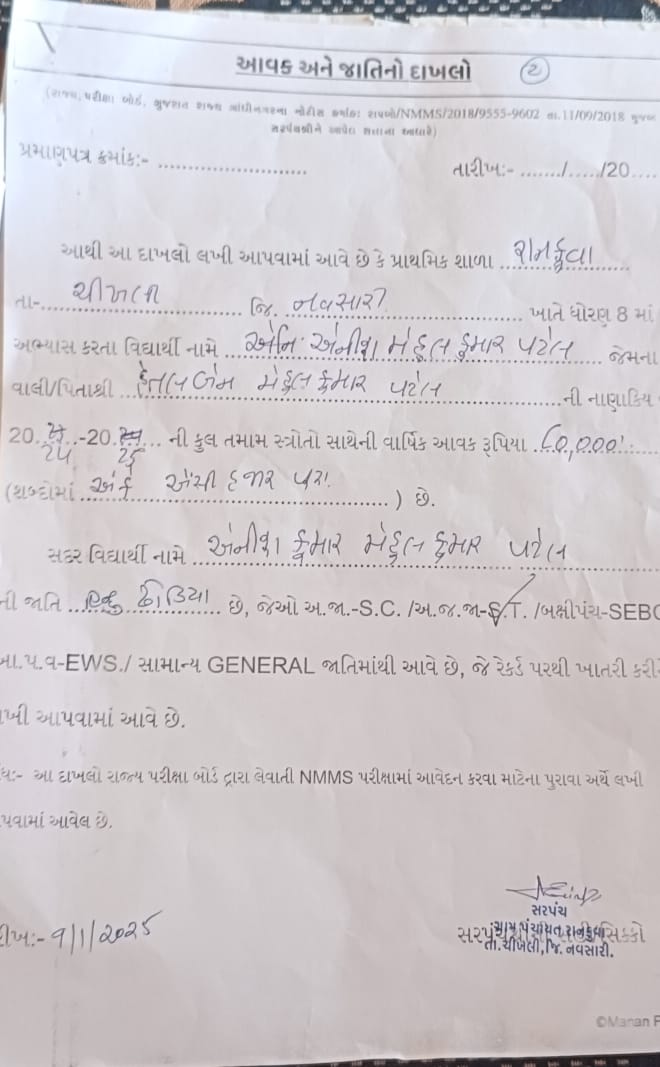 આવક અને જાતિનો દાખલો
2
(રાજ્ય પરીક્ષા બોર્ડ, ગુજરાત રાજ્ય ગાંધીનગરના નોટીસ ક્રમાંક: રાપબો/NMMS/2018/9555-9602 તા.11/09/2018 મુજબ
સરપંચશ્રીને આપેલ સત્તાના આધારે)
પ્રમાણપત્ર ક્રમાંક:- ..............................
તારીખ:- ......./....../20....
આથી આ દાખલો લખી આપવામાં આવે છે કે પ્રાથમિક શાળા રાનકુવા
તા- ચીખલી જિ. નવસારી ખાતે ધોરણ 8 માં
અભ્યાસ કરતા વિદ્યાર્થી નામે મેહુલ કુમાર પટેલ જેમના
વાલી/પિતાશ્રી હેતલબેન મેહુલકુમાર પટેલ ની નાણાકિય
20. 24 -20. 25 ની કુલ તમામ સ્ત્રોતો સાથેની વાર્ષિક આવક રૂપિયા
(શબ્દોમાં હજાર પુરા ) છે.
સદર વિદ્યાર્થી નામે કુમાર મેહુલ કુમાર પટેલ
ની જાતિ ઢોડિયા છે, જેઓ અ.જા.-S.C. /અ.જ.જા-S.T. /બક્ષીપંચ-SEBC
આ.પ.વ-EWS./ સામાન્ય GENERAL જાતિમાંથી આવે છે, જે રેકર્ડ પરથી ખાતરી કરી
લખી આપવામાં આવે છે.
આ દાખલો રાજ્ય પરીક્ષા બોર્ડ દ્વારા લેવાતી NMMS પરીક્ષામાં આવેદન કરવા માટેના પુરાવા અર્થે લખી
આપવામાં આવેલ છે.
સરપંચ
તારીખ:- 9/1/2025
ગ્રામ પંચાયત રાનકુવા
તા.ચીખલી, જિ. નવસારી.
©Manan P